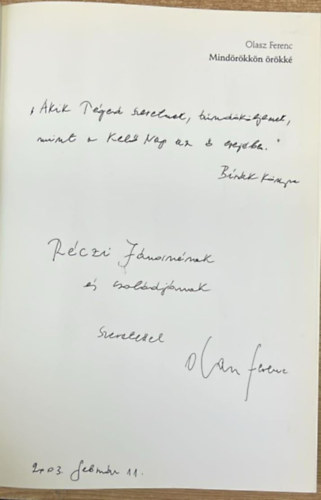 Olasz Ferenc
Mindörökkön örökké
„Akik Téged szeretnek, tündököljenek,
mint a Kelő Nap az ő erejében."
Bírák Könyve
Réczi Jánosnénak
és családjának
szeretettel
Olasz Ferenc
2003. február 11.